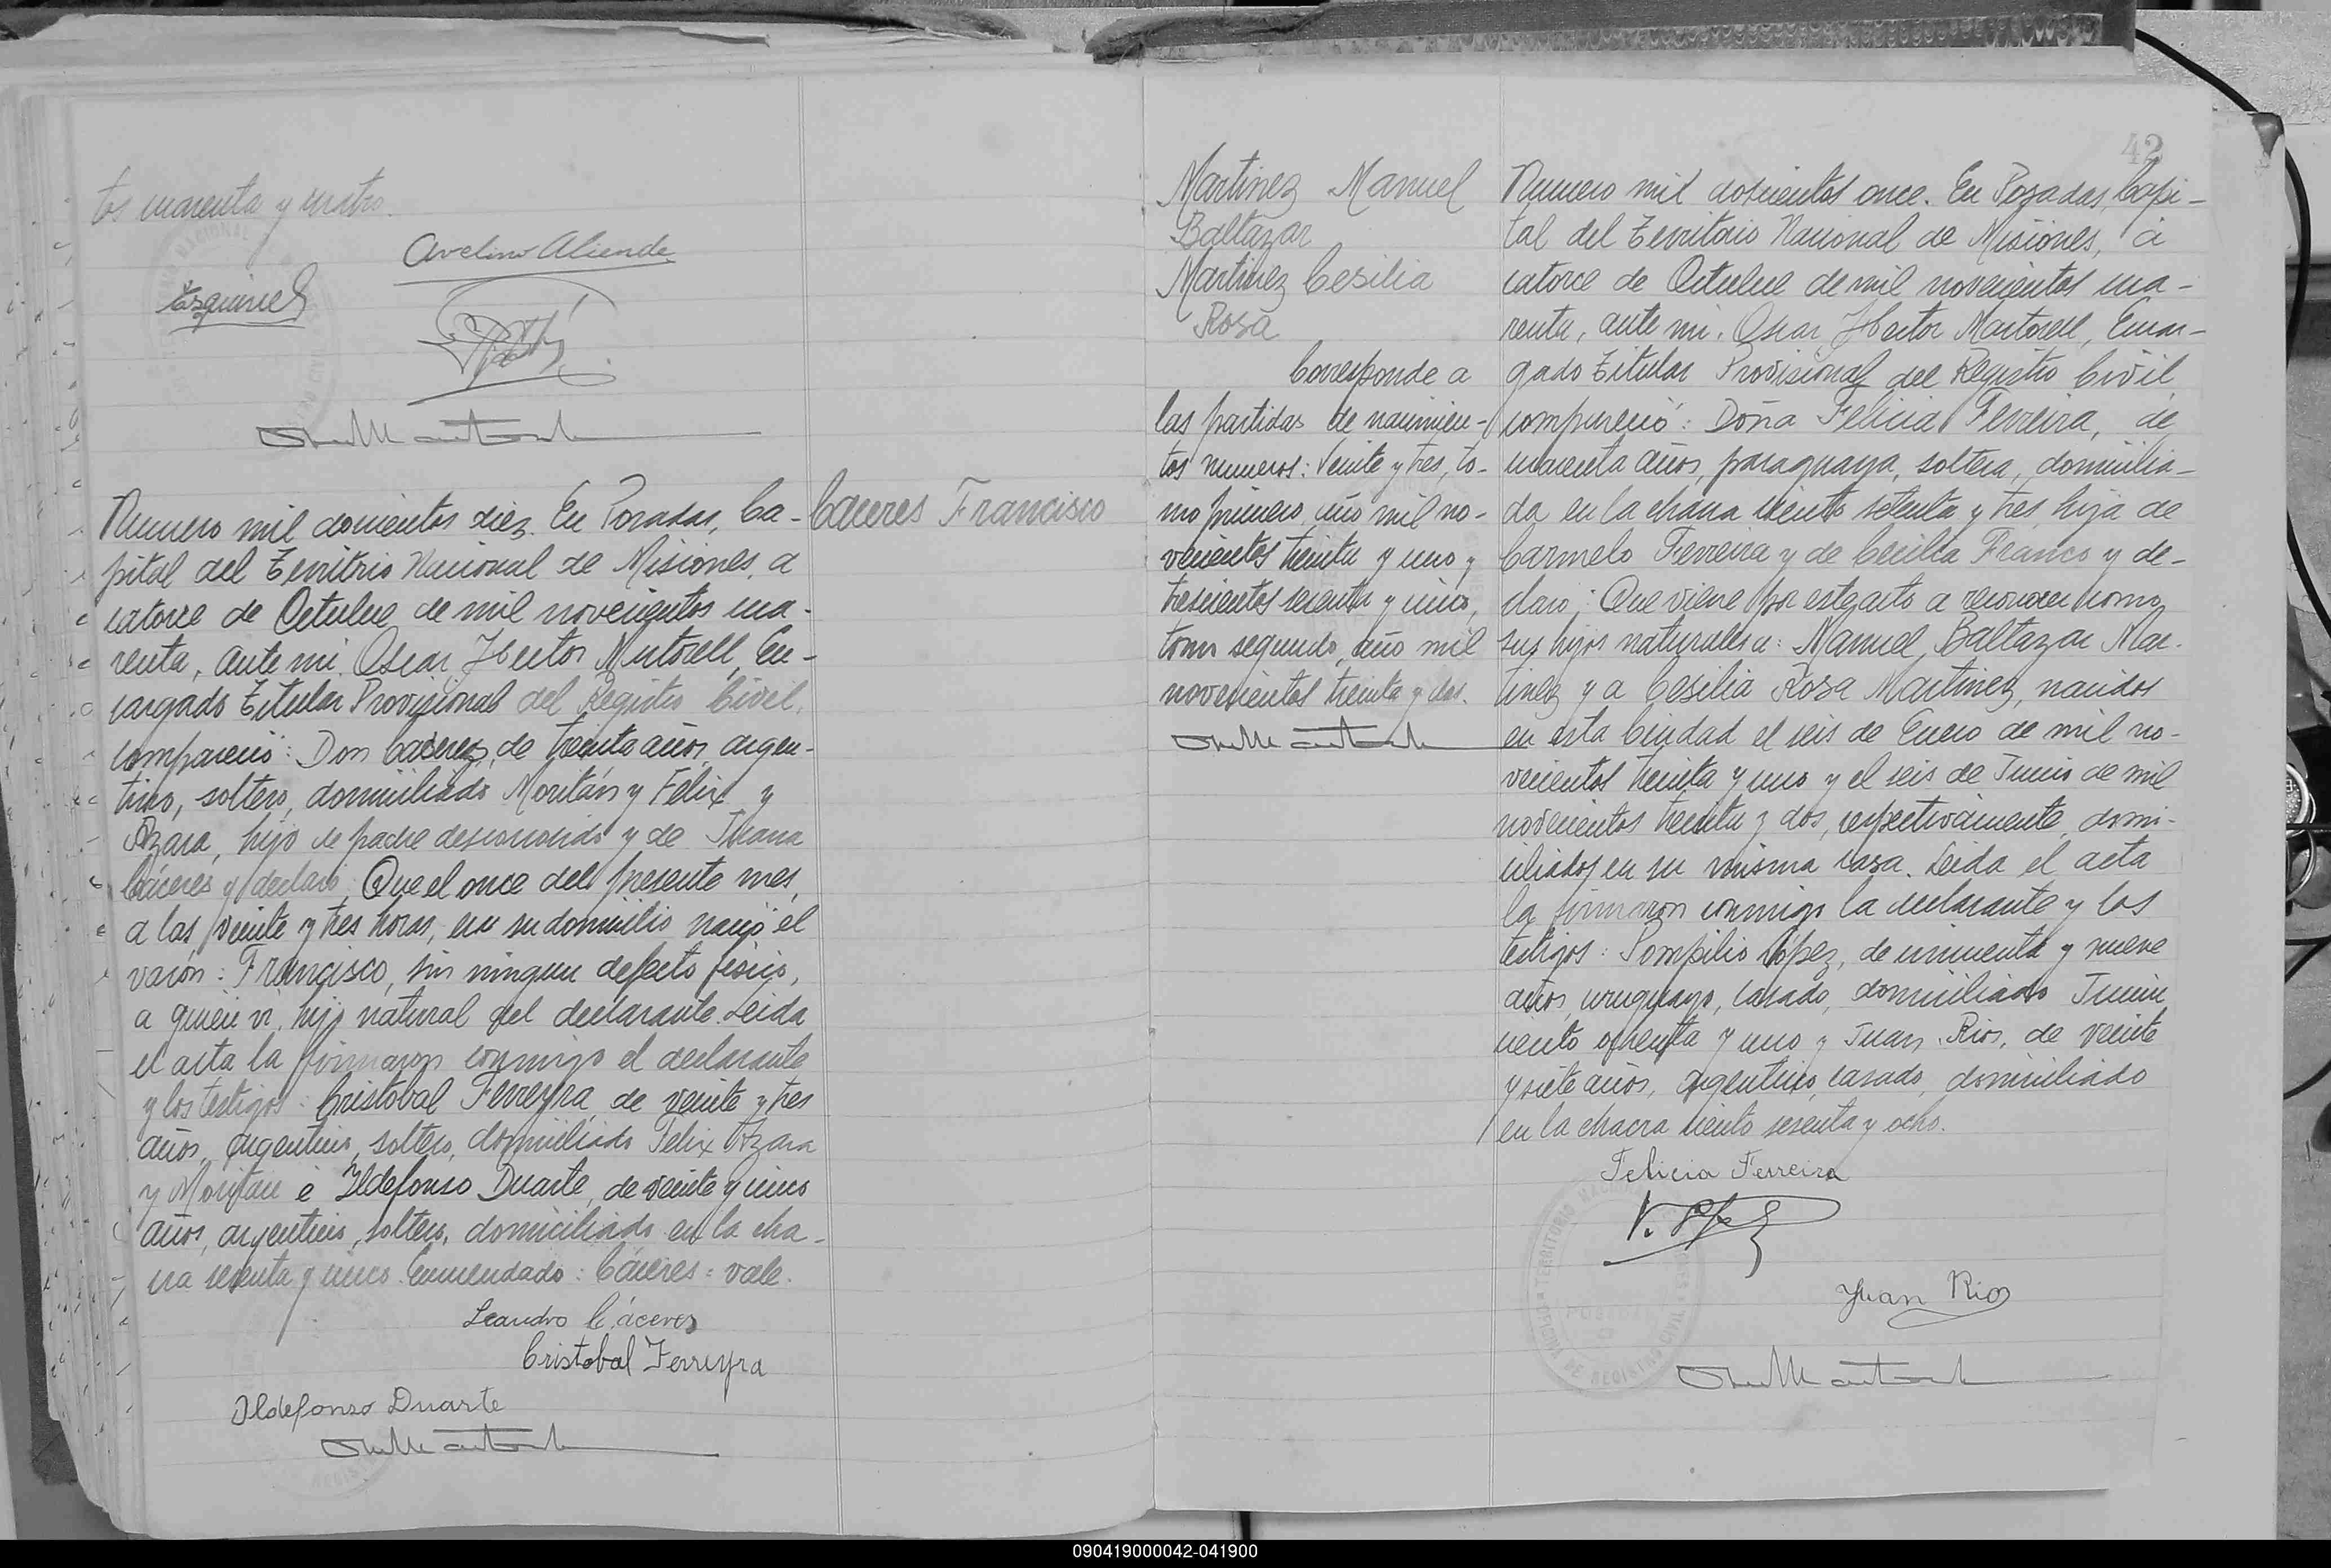 tos cuarenta y cuatro.
Avelino Aliende
Esquivel
Numero mil doscientos diez. En Posadas, Ca-
pital del Territorio Nacional de Misiones, a
catorce de Octubre de mil novecientos cua-
renta, ante mi. Oscar Hector Martorell, En-
cargado Titular Provisional del Registro Civil,
compareció: Don Cáceres, de treinta años, argen-
tino, soltero, domiciliado Moritán y Félix y
Azara, hijo de padre desconocido y de Juana
Cáceres y declaró; Que el once del presente mes,
a las veinte y tres horas, en su domicilio nació el
varón: Francisco, sin ningun defecto fisico,
a quien vi, hijo natural del declarante. Leida
el acta la firmaron conmigo el declarante
y los testigos: Cristobal Ferreyra, de veinte y tres
años, argentino, soltero, domiciliado Felix Azara
y Moritan é Ildefonso Duarte, de veinte y cinco
años, argentino, soltero, domiciliado en la cha-
cra sesenta y cinco. Enmendado: Cáceres = vale.
Leandro Cáceres
Cristobal Ferreyra
Ildefonso Duarte
Caceres Francisco
42
Martinez Manuel
Baltazar
Martinez Cesilia
Rosa
Corresponde a
las partidas de nacimien-
tos numeros: Veinte y tres, to-
mo primero, año mil no-
vecientos treinta y uno y
trescientos sesenta y cinco,
tomo segundo, año mil
novecientos treinta y dos.
Numero mil doscientos once. En Posadas, Capi-
tal del Territorio Nacional de Misiones, á
catorce de Octubre de mil novecientos cua-
renta, ante mi. Oscar Hector Martorell, Encar-
gado Titular Provisional del Registro Civil,
compareció: Doña Felicia Ferreira, de
cuarenta años, paraguaya, soltera, domicilia-
da en la chacra ciento setenta y tres, hija de
Carmelo Ferreira y de Cecilia Franco y de-
claro; Que viene por este acto a reconocer como
sus hijos naturales a: Manuel Baltazar Mar-
tinez y a Cesilia Rosa Martinez, nacidos
en esta Ciudad el seis de Enero de mil no-
vecientos treinta y uno y el seis de Junio de mil
novecientos treinta y dos, respectivamente, domi-
ciliados en su misma casa. Leida el acta
la firmaron conmigo la declarante y los
testigos: Pompilio López, de cincuenta y nueve
años, uruguayo, casado, domiciliado Junin
ciento ochenta y uno y Juan Rios, de veinte
y siete años, argentino, casado, domiciliado
en la chacra ciento sesenta y ocho.
Felicia Ferreira
Juan Rios
090419000042-041900